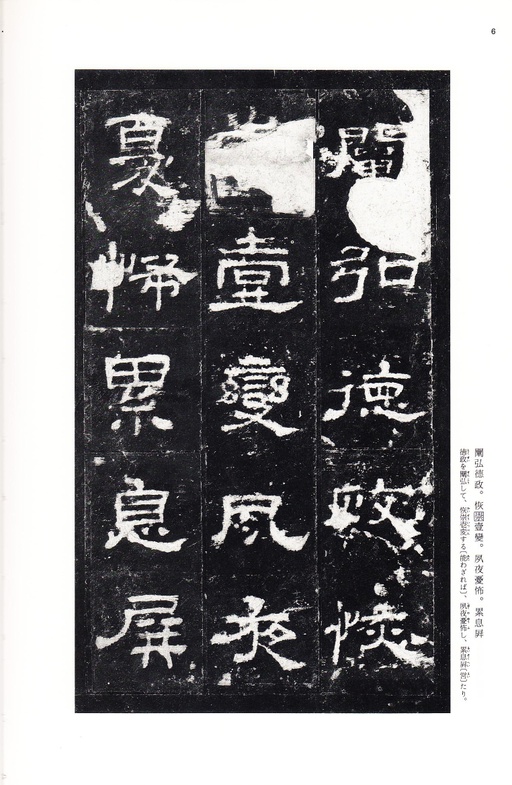 6
闡弘德政恢
壹變夙夜
憂怖累息屏
闡弘德政。恢崇壹變。夙夜憂怖。累息屏
徳政を闡弘して、恢崇壹変する〔能わざれば〕、夙夜憂怖し、累息屏〔営〕たり。